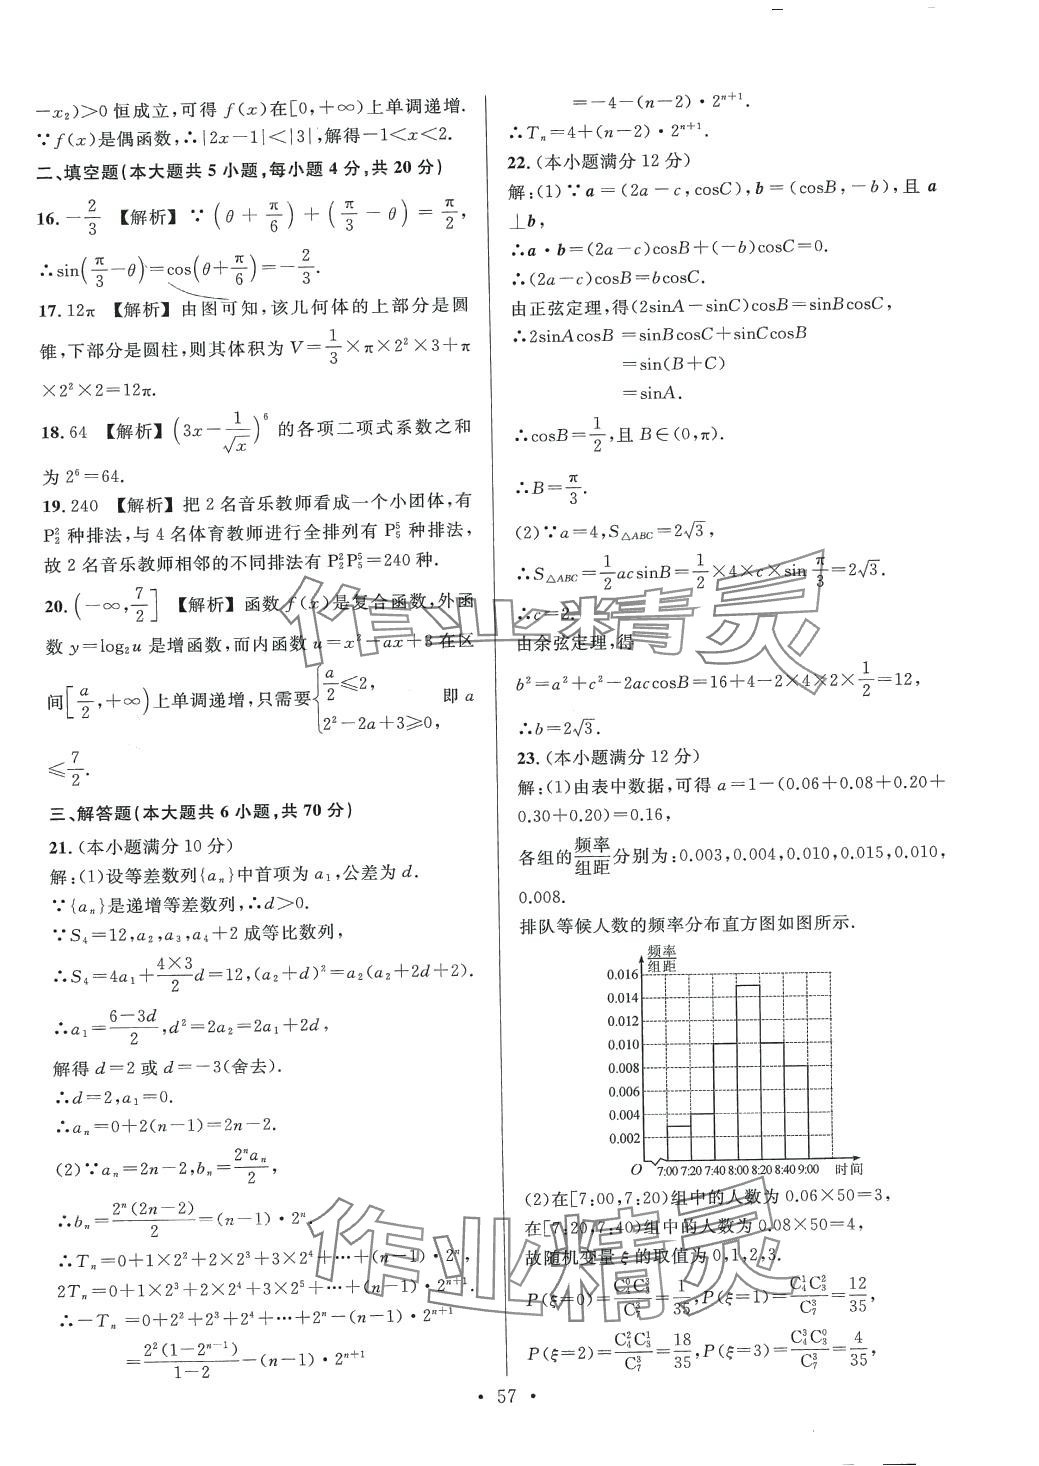 -x₂)>0 恒成立,可得 f(x)在[0,+∞)上单调递增.
∵f(x)是偶函数,∴|2x-1|<|3|,解得-1<x<2.
二、填空题(本大题共 5 小题,每小题 4 分,共 20 分)
16. -2/3 【解析】∵(θ+π/6)+(π/3-θ)=π/2,
∴sin(π/3-θ)=cos(θ+π/6)=-2/3.
17. 12π 【解析】由图可知,该几何体的上部分是圆
锥,下部分是圆柱,则其体积为 V=1/3×π×2²×3+π
×2²×2=12π.
18. 64 【解析】(3x-1/√x)⁶ 的各项二项式系数之和
为 2⁶=64.
19. 240 【解析】把 2 名音乐教师看成一个小团体,有
P₂² 种排法,与 4 名体育教师进行全排列有 P₅⁵ 种排法,
故 2 名音乐教师相邻的不同排法有 P₂²P₅⁵=240 种.
20. (-∞,7/2] 【解析】函数 f(x)是复合函数,外函
数 y=log₂u 是增函数,而内函数 u=x²-ax+3 在区
间[a/2,+∞)上单调递增,只需要{a/2≤2, 2²-2a+3≥0, 即 a
≤7/2.
三、解答题(本大题共 6 小题,共 70 分)
21. (本小题满分 10 分)
解:(1)设等差数列{aₙ}中首项为 a₁,公差为 d.
∵{aₙ}是递增等差数列,∴d>0.
∵S₄=12,a₂,a₃,a₄+2 成等比数列,
∴S₄=4a₁+(4×3)/2 d=12,(a₂+d)²=a₂(a₂+2d+2).
∴a₁=(6-3d)/2,d²=2a₂=2a₁+2d,
解得 d=2 或 d=-3(舍去).
∴d=2,a₁=0.
∴aₙ=0+2(n-1)=2n-2.
(2)∵aₙ=2n-2,bₙ=2ⁿaₙ/2,
∴bₙ=2ⁿ(2n-2)/2=(n-1)·2ⁿ.
∴Tₙ=0+1×2²+2×2³+3×2⁴+…+(n-1)·2ⁿ,
2Tₙ=0+1×2³+2×2⁴+3×2⁵+…+(n-1)·2ⁿ⁺¹.
∴-Tₙ=0+2²+2³+2⁴+…+2ⁿ-(n-1)·2ⁿ⁺¹
=2²(1-2ⁿ⁻¹)/(1-2)-(n-1)·2ⁿ⁺¹
=-4-(n-2)·2ⁿ⁺¹.
∴Tₙ=4+(n-2)·2ⁿ⁺¹.
22. (本小题满分 12 分)
解:(1)∵a=(2a-c,cosC),b=(cosB,-b),且 a
⊥b,
∴a·b=(2a-c)cosB+(-b)cosC=0.
∴(2a-c)cosB=bcosC.
由正弦定理,得(2sinA-sinC)cosB=sinBcosC,
∴2sinAcosB=sinBcosC+sinCcosB
=sin(B+C)
=sinA.
∴cosB=1/2,且 B∈(0,π).
∴B=π/3.
(2)∵a=4,S△ABC=2√3,
∴S△ABC=1/2 acsinB=1/2×4×c×sin π/3=2√3.
∴c=2.
由余弦定理,得
b²=a²+c²-2accosB=16+4-2×4×2×1/2=12,
∴b=2√3.
23. (本小题满分 12 分)
解:(1)由表中数据,可得 a=1-(0.06+0.08+0.20+
0.30+0.20)=0.16,
各组的频率/组距分别为:0.003,0.004,0.010,0.015,0.010,
0.008.
排队等候人数的频率分布直方图如图所示.
频率/组距
0.016
0.014
0.012
0.010
0.008
0.006
0.004
0.002
O 7:00 7:20 7:40 8:00 8:20 8:40 9:00 时间
(2)在[7:00,7:20)组中的人数为 0.06×50=3,
在[7:20,7:40)组中的人数为 0.08×50=4,
故随机变量 ξ 的取值为 0,1,2,3.
P(ξ=0)=C₄⁰C₃³/C₇³=1/35,P(ξ=1)=C₄¹C₃²/C₇³=12/35,
P(ξ=2)=C₄²C₃¹/C₇³=18/35,P(ξ=3)=C₄³C₃⁰/C₇³=4/35,
· 57 ·
作业精灵
作业精灵